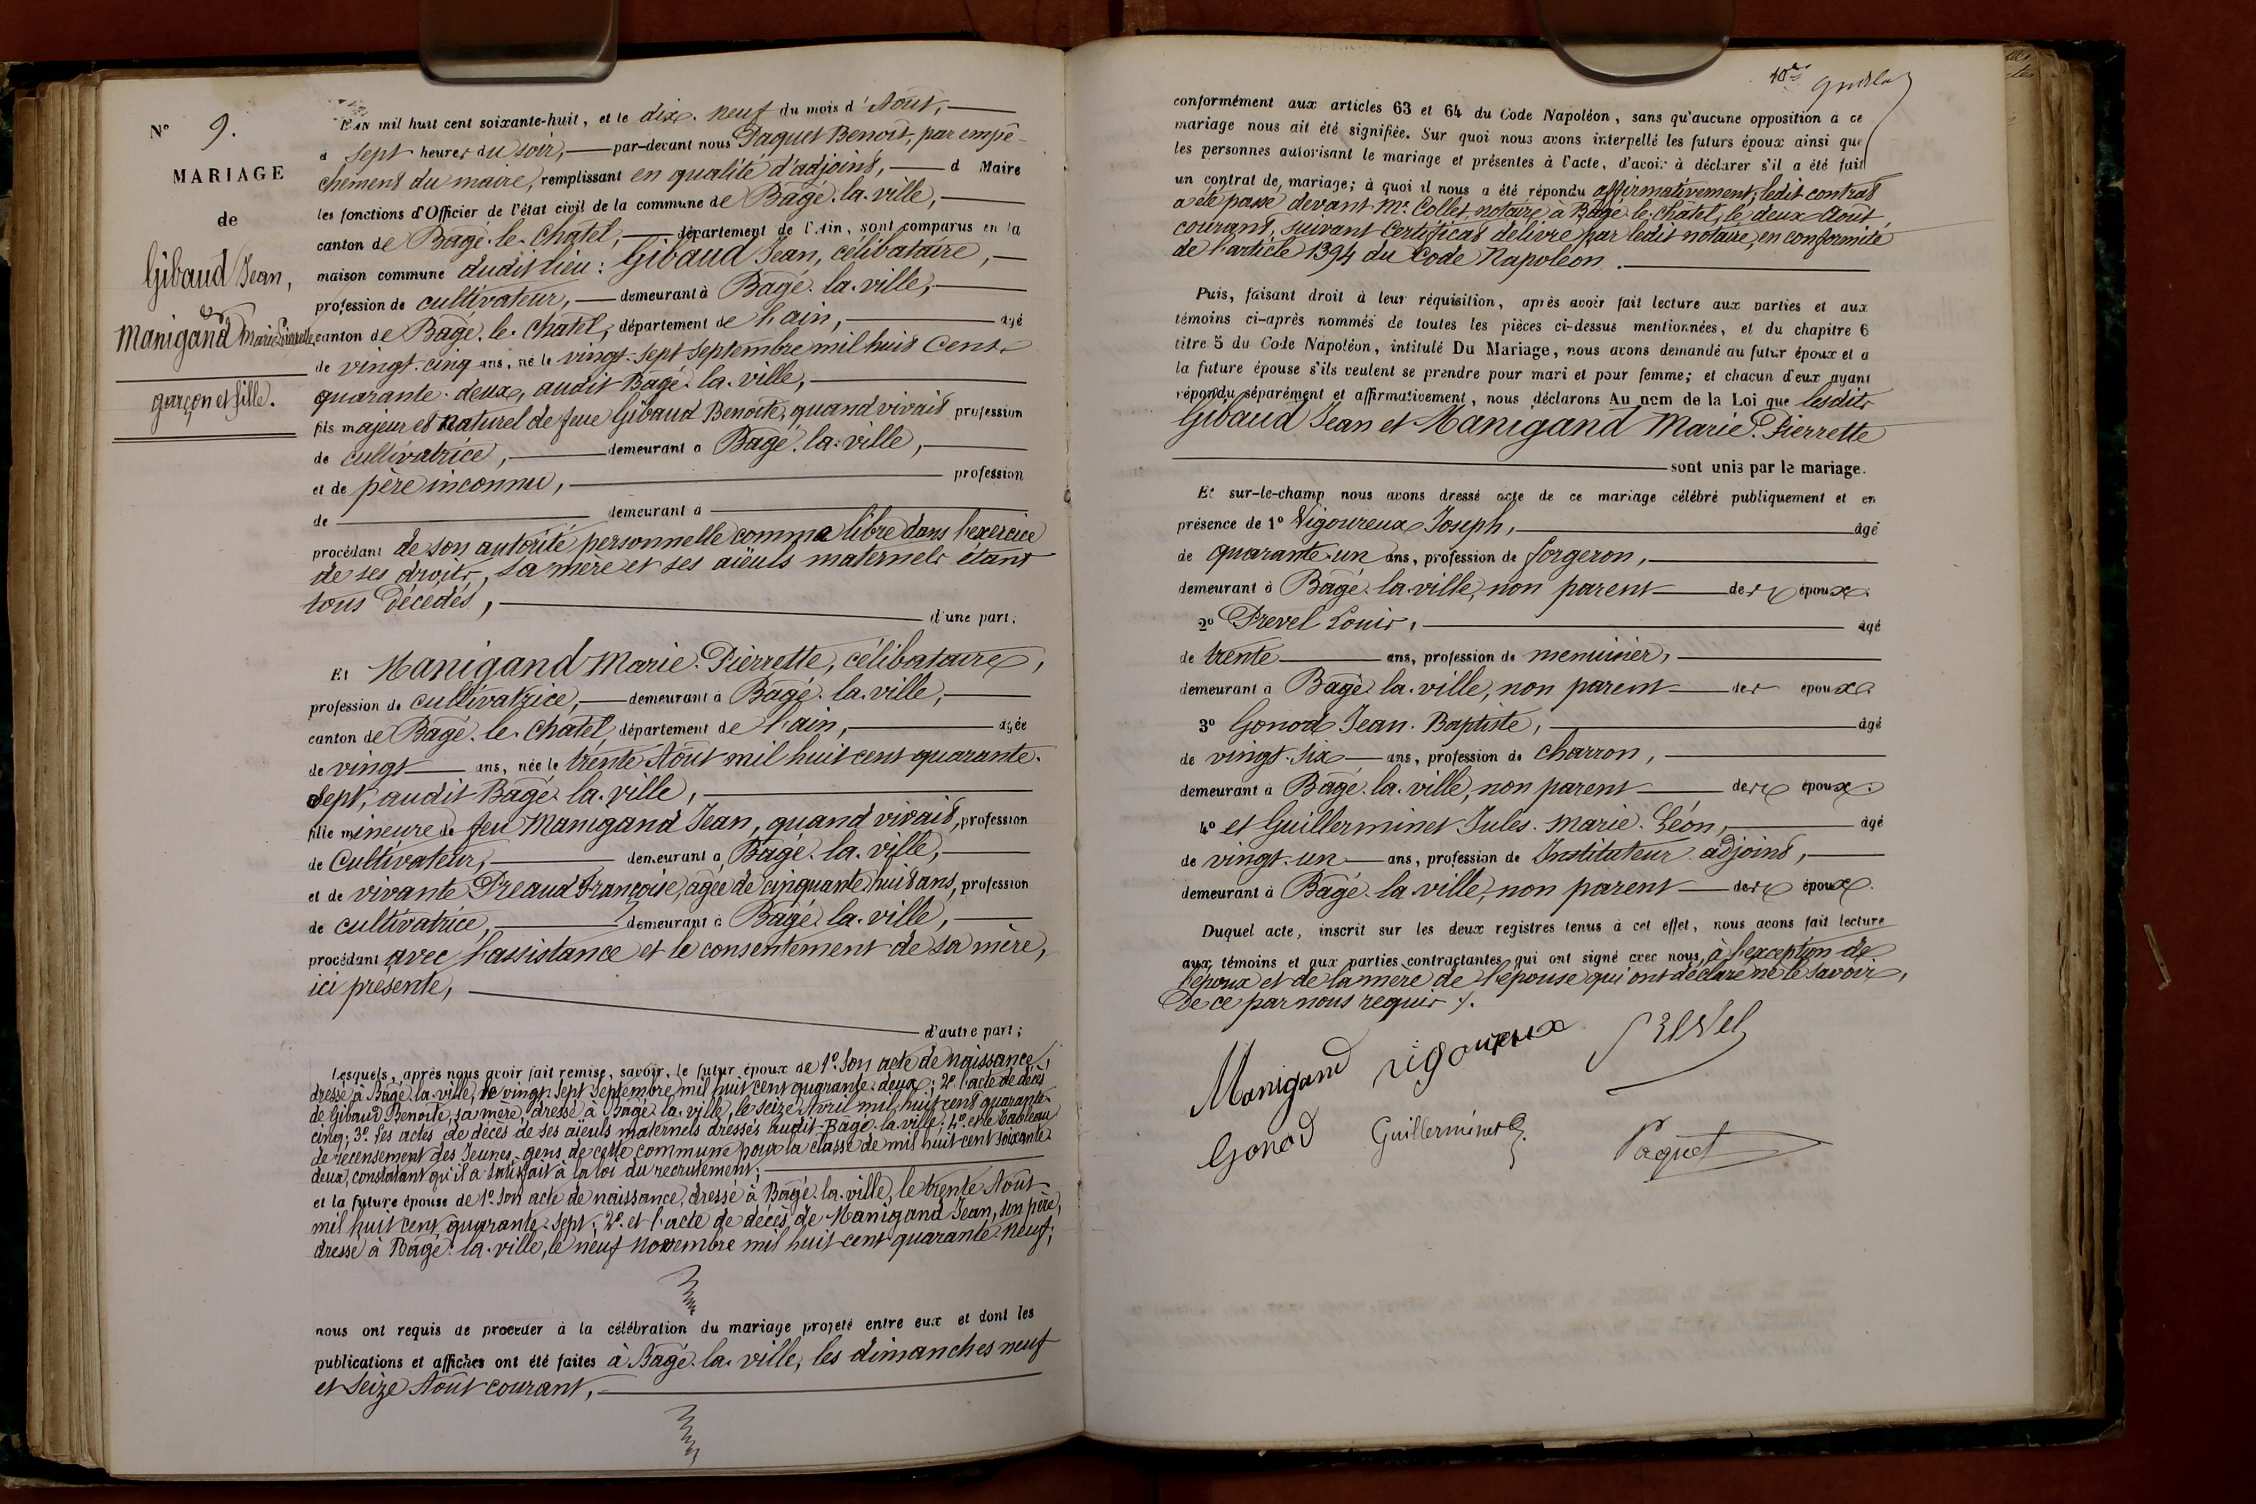 N° 9.
MARIAGE
de
Gibaud Jean,
&
Manigand Marie Pierrette
garçon et fille.
L'AN mil huit cent soixante-huit, et le dix-neuf du mois d'Août,
à sept heures du soir, par-devant nous Paquet Benoît, par empê-
chement du maire, remplissant en qualité d'adjoint, d Maire
les fonctions d'Officier de l'état civil de la commune de Bâgé-la-ville,
canton de Bâgé-le-Châtel, département de l'Ain, sont comparus en la
maison commune dudit lieu : Gibaud Jean, célibataire,
profession de cultivateur, demeurant à Bâgé-la-ville,
canton de Bâgé-le-Châtel, département de l'ain, âgé
de vingt-cinq ans, né le vingt-sept Septembre mil huit cent
quarante-deux, audit Bâgé-la-ville,
fils majeur et naturel de feue Gibaud Benoite, quand vivait profession
de cultivatrice, demeurant à Bâgé-la-ville,
et de père inconnu, profession
de demeurant à
procédant de son autorité personnelle comme libre dans l'exercice
de ses droits, sa mère et ses aïeuls maternels étant
tous décédés, d'une part.
Et Manigand Marie-Pierrette, célibataire,
profession de cultivatrice, demeurant à Bâgé-la-ville,
canton de Bâgé-le-Châtel, département de l'ain, âgée
de vingt ans, née le trente Août mil huit cent quarante-
sept, audit Bâgé-la-ville,
fille mineure de feu Manigand Jean, quand vivait, profession
de Cultivateur, demeurant à Bâgé-la-ville,
et de vivante Preaud Françoise, âgée de cinquante huit ans, profession
de cultivatrice, demeurant à Bâgé-la-ville,
procédant avec l'assistance et le consentement de sa mère,
ici présente,
d'autre part ;
Lesquels, après nous avoir fait remise, savoir, le futur époux de 1° Son acte de naissance,
dressé à Bâgé-la-ville, le vingt-sept Septembre mil huit cent quarante-deux ; 2° l'acte de décès
de Gibaud Benoite, sa mère, dressé à Bâgé-la-ville, le seize Avril mil huit cent quarante-
cinq ; 3° les actes de décès de ses aïeuls maternels dressés audit Bâgé-la-ville ; 4° et le tableau
de recensement des Jeunes-gens de cette commune pour la classe de mil huit cent soixante-
deux, constatant qu'il a satisfait à la loi du recrutement ;
et la future épouse de 1° Son acte de naissance, dressé à Bâgé-la-ville, le trente Août
mil huit cent quarante-sept ; 2° et l'acte de décès de Manigand Jean, son père,
dressé à Bâgé-la-ville, le neuf Novembre mil huit cent quarante-neuf ;
nous ont requis de procéder à la célébration du mariage projeté entre eux et dont les
publications et affiches ont été faites à Bâgé-la-ville, les dimanches neuf
et Seize Août courant,
10e
conformément aux articles 63 et 64 du Code Napoléon, sans qu'aucune opposition à ce
mariage nous ait été signifiée. Sur quoi nous avons interpellé les futurs époux ainsi que
les personnes autorisant le mariage et présentes à l'acte, d'avoir à déclarer s'il a été fait
un contrat de mariage ; à quoi il nous a été répondu affirmativement, ledit contrat
a été passé devant Me Collet notaire à Bâgé-le-Châtel, le deux Août
courant, suivant certificat délivré par ledit notaire, en conformité
de l'article 1394 du Code Napoléon.
Puis, faisant droit à leur réquisition, après avoir fait lecture aux parties et aux
témoins ci-après nommés de toutes les pièces ci-dessus mentionnées, et du chapitre 6
titre 5 du Code Napoléon, intitulé Du Mariage, nous avons demandé au futur époux et à
la future épouse s'ils veulent se prendre pour mari et pour femme ; et chacun d'eux ayant
répondu séparément et affirmativement, nous déclarons Au nom de la Loi que lesdits
Gibaud Jean et Manigand Marie-Pierrette
sont unis par le mariage.
Et sur-le-champ nous avons dressé acte de ce mariage célébré publiquement et en
présence de 1° Vigoureux Joseph, âgé
de quarante-un ans, profession de forgeron,
demeurant à Bâgé-la-ville, non parent des époux.
2° Prevel Louis, âgé
de trente ans, profession de menuisier,
demeurant à Bâgé-la-ville, non parent des époux.
3° Gonod Jean-Baptiste, âgé
de vingt-six ans, profession de charron,
demeurant à Bâgé-la-ville, non parent des époux.
4° et Guillerminet Jules-Marie-Léon, âgé
de vingt-un ans, profession de Instituteur adjoint,
demeurant à Bâgé-la-ville, non parent des époux.
Duquel acte, inscrit sur les deux registres tenus à cet effet, nous avons fait lecture
aux témoins et aux parties contractantes qui ont signé avec nous, à l'exception de
l'époux et de la mère de l'épouse qui ont déclaré ne le savoir,
de ce par nous requis.
Manigand vigoureux PREVEL
Gonod Guillerminet Paquet